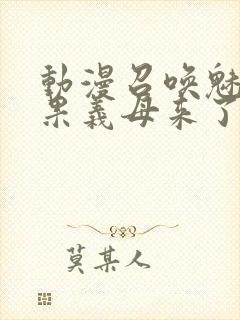 動漫召喚魅
果義母來了
莫某人